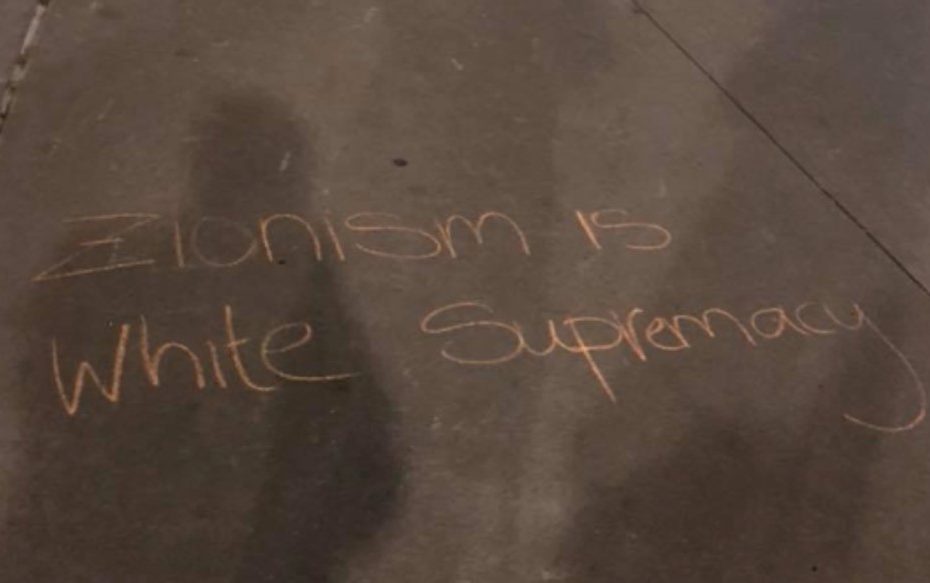 Zionism is
White Supremacy